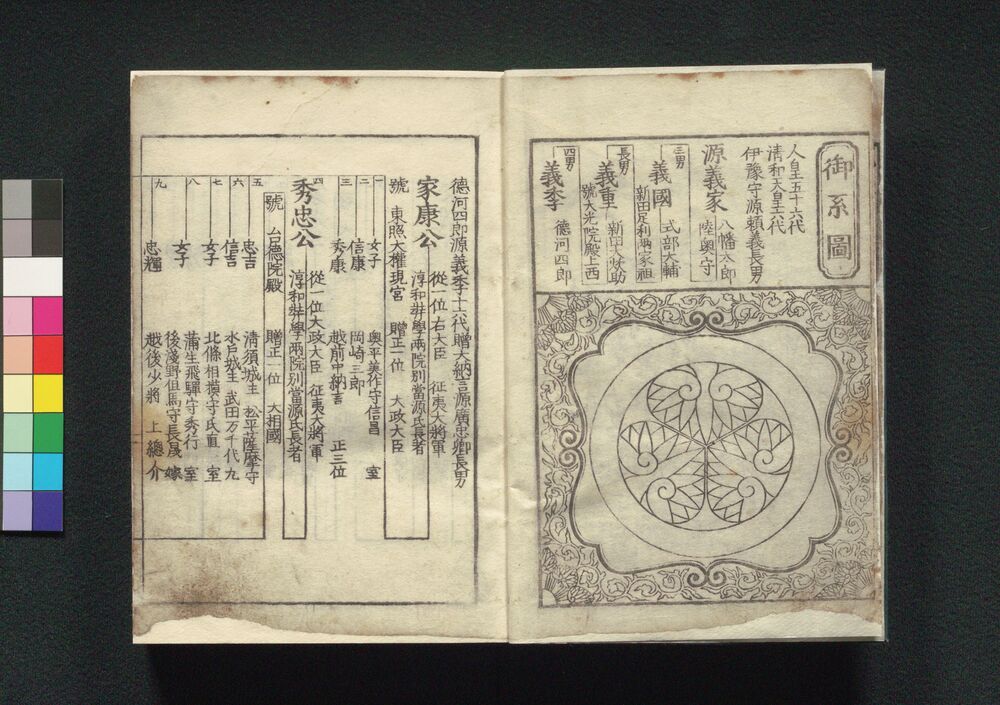 御系圖
人皇五十六代
清和天皇六代
伊豫守源頼義長男
源義家 八幡太郎
陸奥守
三男
義國 式部大輔
新田足利両家祖
長男
義重 新田大炊助
號大光院殿上西
四男
義季 德河四郎
德河四郎源義季十六代贈大納言源廣忠卿長男
家康公 從一位右大臣 征夷大將軍
淳和奬學兩院別當源氏長者
號 東照大權現宮 贈正一位 大政大臣
一 女子 奥平美作守信昌 室
二 信康 岡崎三郎
三 秀康 越前中納言 正三位
四
秀忠公 從一位大政大臣 征夷大將軍
淳和奬學兩院別當源氏長者
號 台德院殿 贈正一位 大相國
五 忠吉 清須城主 松平薩摩守
六 信吉 水戸城主 武田万千代丸
七 女子 北條相摸守氏直 室
八 女子 蒲生飛騨守秀行 室
後淺野但馬守長晟 嫁
九 忠輝 越後少將 上總介